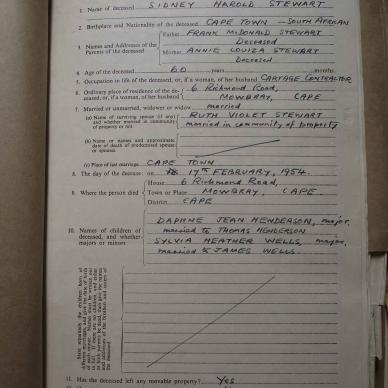 1. Name of deceased SIDNEY HAROLD STEWART
2. Birthplace and Nationality of the deceased CAPE TOWN - SOUTH AFRICAN
3. Names and Addresses of the Parents of the deceased
Father FRANK McDONALD STEWART
Deceased
Mother ANNIE LOUIZA STEWART
Deceased
4. Age of the deceased 60 years months
5. Occupation in life of the deceased, or, if a woman, of her husband CARTAGE CONTRACTOR
6. Ordinary place of residence of the deceased, or, if a woman, of her husband
6 Richmond Road,
MOWBRAY, CAPE
7. Married or unmarried, widower or widow married
(a) Name of surviving spouse (if any) and whether married in community of property or not
RUTH VIOLET STEWART
married in community of property
(b) Name or names and approximate date of death of predeceased spouse or spouses
(c) Place of last marriage CAPE TOWN
8. The day of the decease: on 17TH FEBRUARY, 1954.
9. Where the person died
House 6 Richmond Road,
Town or Place MOWBRAY, CAPE
District CAPE
10. Names of children of deceased, and whether majors or minors
DAPHNE JEAN HENDERSON, major,
married to THOMAS HENDERSON
SYLVIA HEATHER WELLS, major,
married to JAMES WELLS.
11. Has the deceased left any movable property? Yes